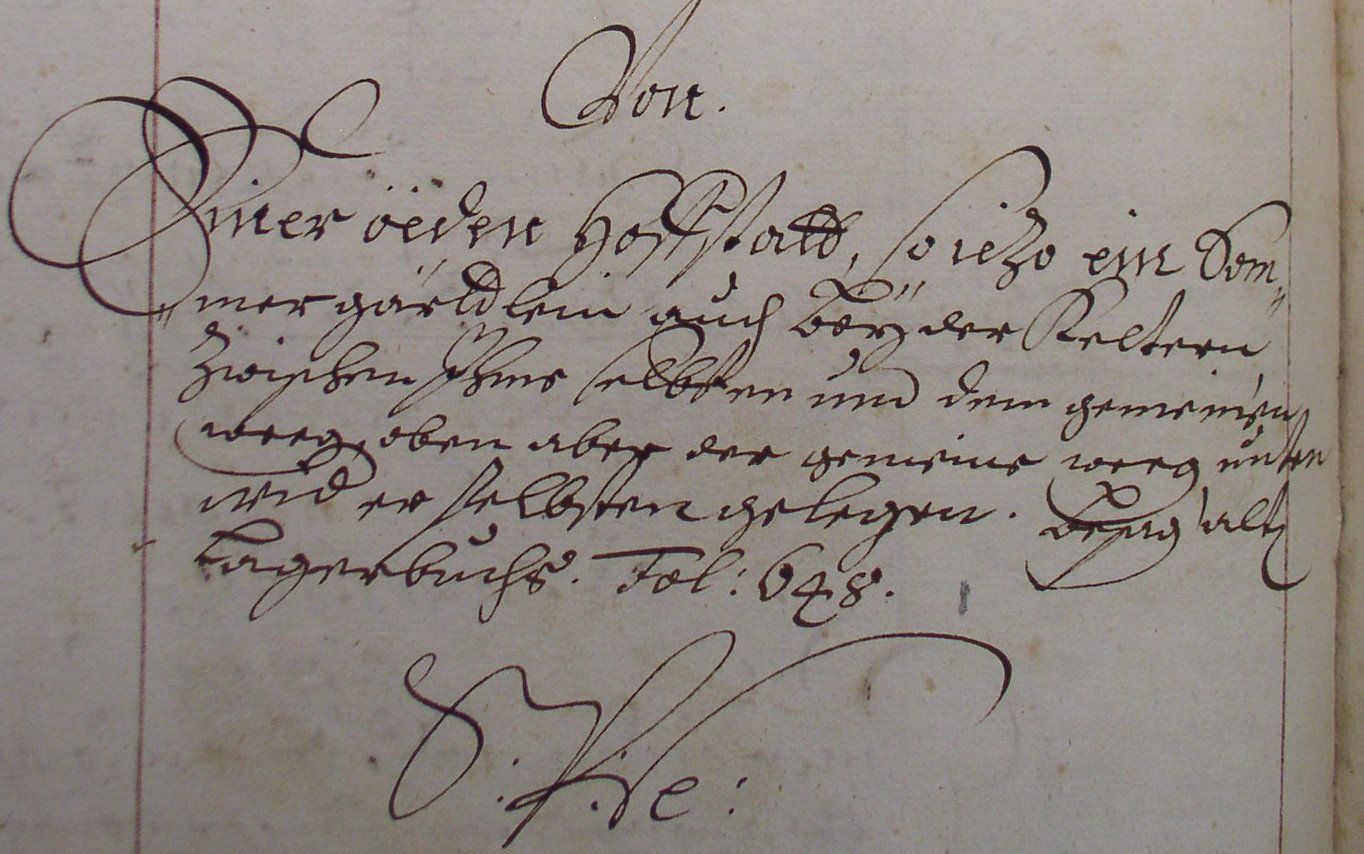 Von.
Einer öeden Hoffstatt, so iezo ein Som„
„mergärttlein auch beÿ der Keltern
Zwischen Ihme selbsten und dem gemeinen
weeg, oben aber der gemeine weeg unten
und er selbsten gelegen. besag alt
Lagerbuchs. Fol: 648.